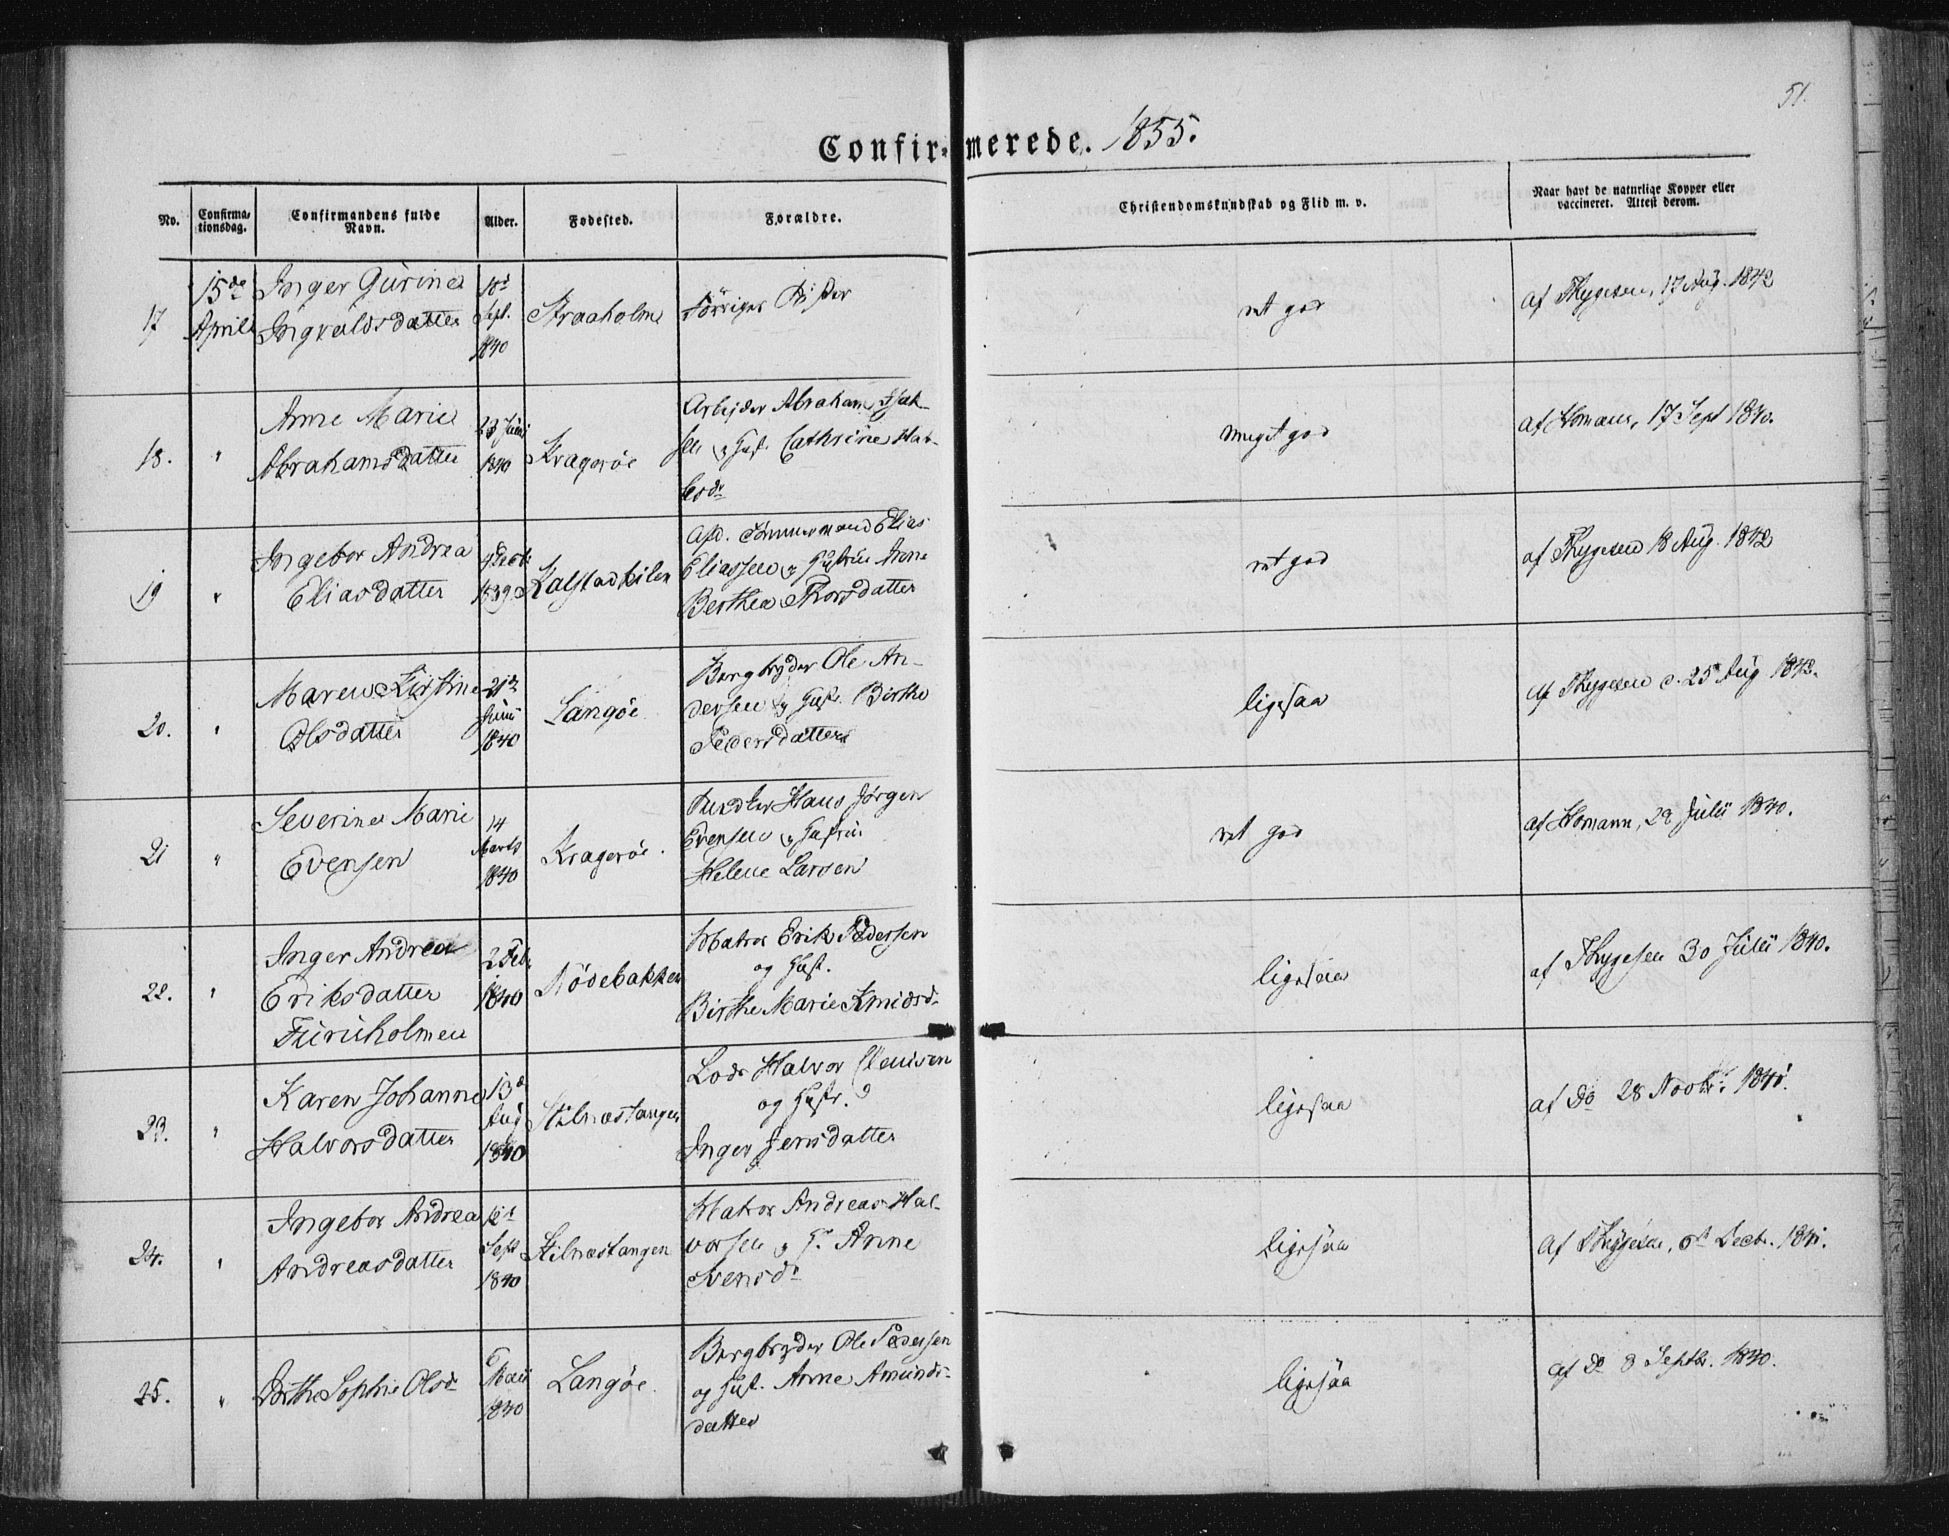 51.
Confirmerede. 1855.
No.
Confirma-
tionsdag.
Confirmandens fulde
Navn.
Alder.
Fødested.
Forældre.
Christendomskundskab og Flid m. v.
Naar havt de naturlige Kopper eller
vaccineret. Attest derom.
17
15de
April
Inger Gurine
Ingvaldsdatter
18de
Sept.
1840
Straaholme
Forriges Sister
ret god
af Thygesen, 17 Aug. 1842
18.
"
Anne Marie
Abrahamsdatter
23 Juni
1840
Kragerøe
Arbeider Abraham Isak-
sen og Hust. Cathrine Hal-
vesdr
meget god
af Homann, 17 Sept 1840.
19
"
Ingebor Andrea
Eliasdatter
9 Decbr
1839
Kalstadkilen
Afd. Tømmermand Elias
Eliassen og Hustrue Anne
Berthea Thorsdatter
ret god
af Thygesen 18 Aug. 1842
20.
"
Maren Kirstine
Olsdatter
21de
Juni
1840
Langøe
Bergbryder Ole An-
dersen og Hustr. Birthe
Pedersdatter
ligesaa
af Thygesen d. 25 Aug 1842.
21
"
Severine Marie
Evensen
14
Marts
1840
Kragerøe.
Hans Jørgen
Evensen og Hustrue
Helene Larsen
ret god
af Homann, 28 Julii 1840.
22.
"
Inger Andrea
Eriksdatter
Furuholmen
2 Feb.
1840
Nødebakken
Matros Erik Pedersen
og Hust.
Birthe Marie Knudsd.
ligesaa
af Thygesen 30 Julii 1840.
23.
"
Karen Johanne
Halvorsdatter
13de
Aug
1840
Stilnæstangen
Lods Halvor Clausen
og Hustr.
Inger Jensdatter
ligesaa
af Do 28 Novbr. 1841.
24.
"
Ingebor Andrea
Andreasdatter
12te
Sept
1840
Stilnæstangen
Matros Andreas Hal-
vorsen og H. Anne
Svensdr
ligesaa
af Thygesen, Decbr. 1841.
25.
"
Birthe Sophie Olsdr
6
Maii
1840
Langøe.
Bergbryder Ole Pedersen
og Hust. Anne Amunds-
datter
ligesaa
af Do 8 Septbr. 1840.